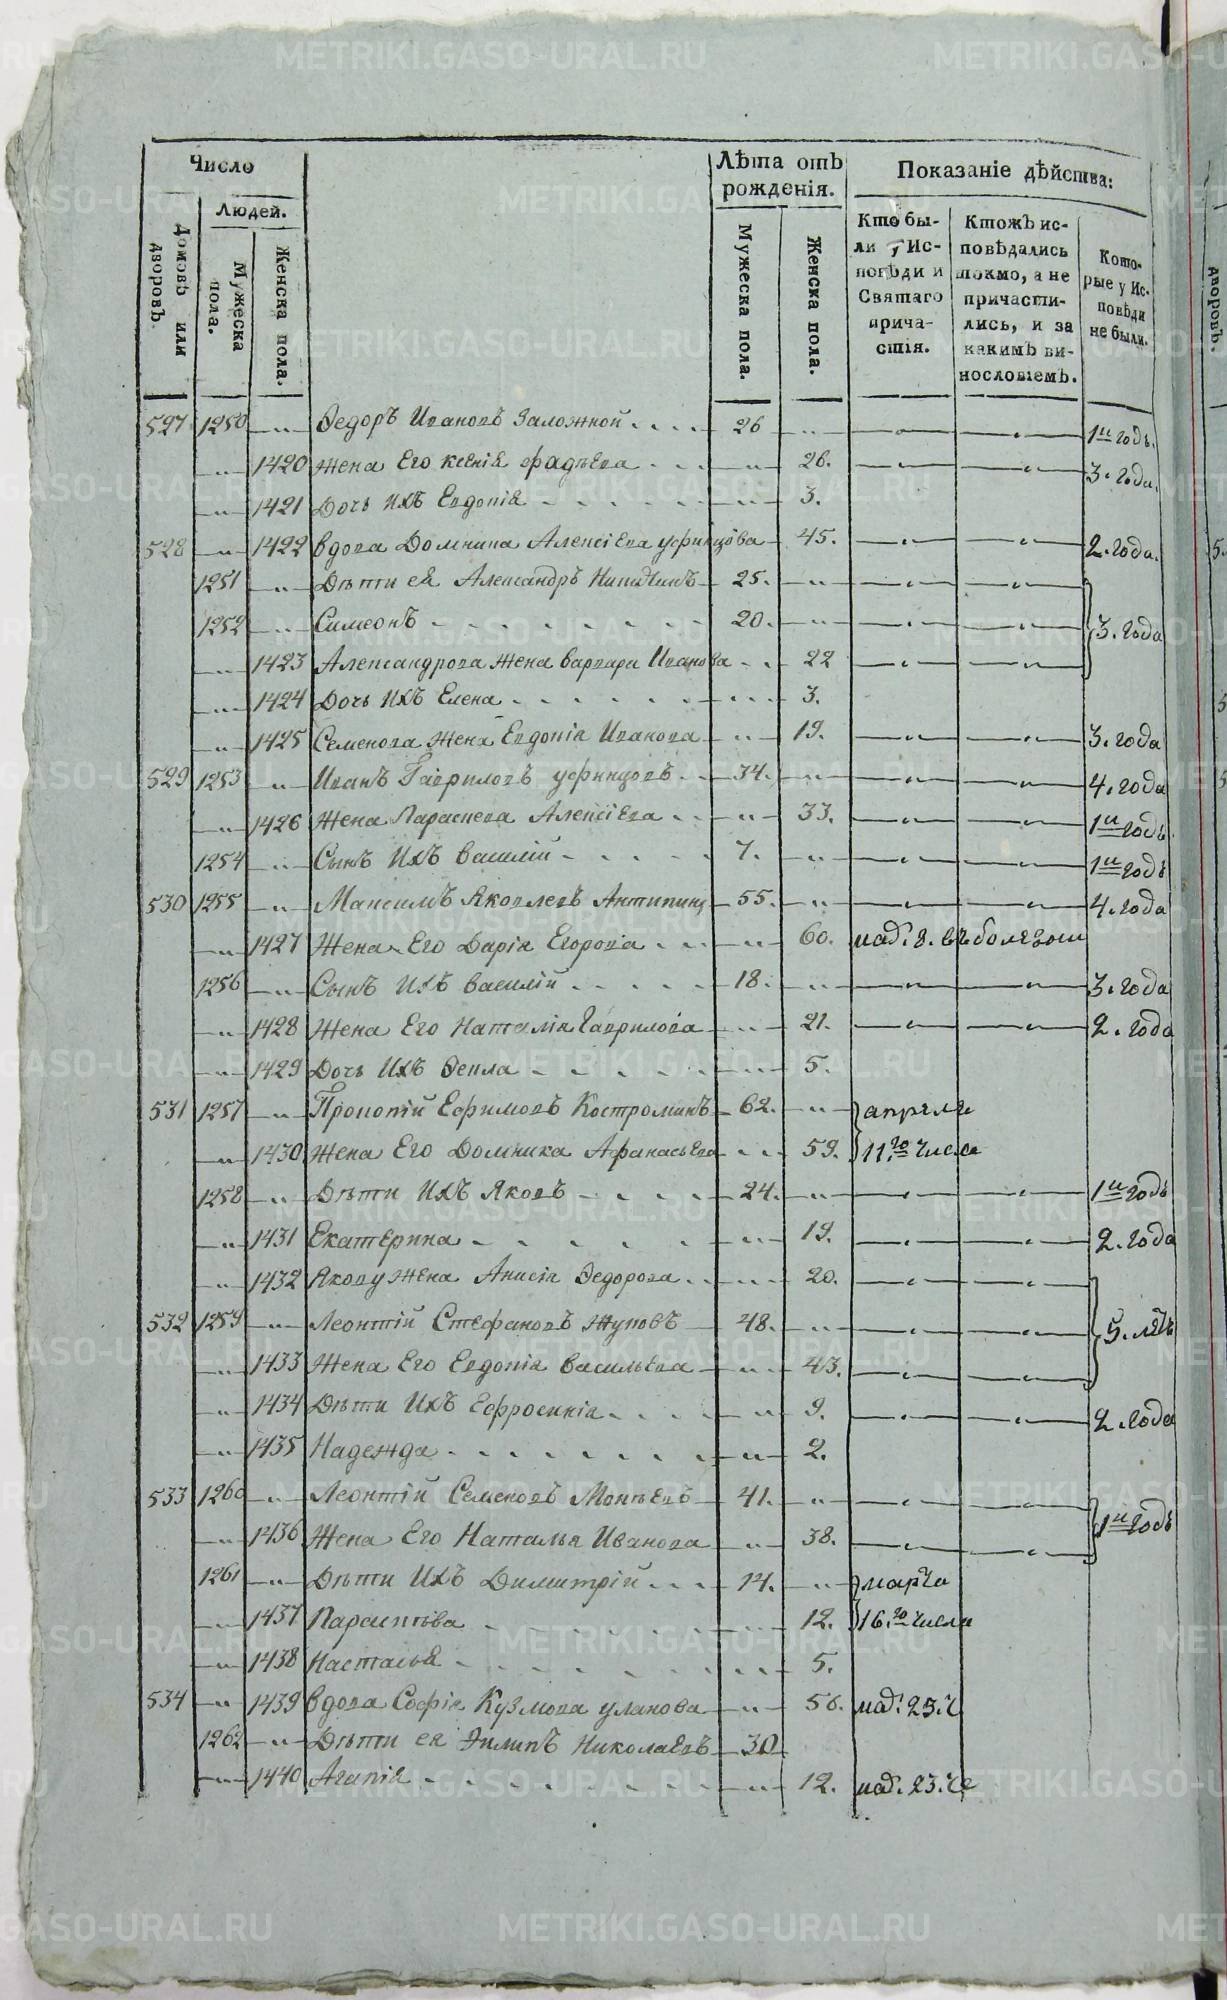 Число
Людей.
Домовъ или дворовъ.
Мужеска пола.
Женска пола.
Лѣта отъ рожденія.
Мужеска пола.
Женска пола.
Показаніе дѣйства:
Кто бы-
ли у Ис-
повѣди и
Святаго
прича-
стія.
Ктожъ ис-
повѣдались
токмо, а не
причасти-
лись, и за
какимъ ви-
нословіемъ.
Кото-
рые у Ис-
повѣди
не были.
527 1250 Ѳедоръ Ивановъ Заложной 26 1й годъ.
1420 жена Его Ксенія Фадѣева 26. 3. года.
1421 Дочь Ихъ Евдокія 3.
528 1422 вдова Домнина Алексіева уфинцова 45. 2. года.
1251 Дѣти ея Александръ Никитинъ 25.
1252 Симеонъ 20. 3. года
1423 Александрова жена варвара Иванова 22
1424 Дочь Ихъ Елена 3.
1425 Семенова жена Евдокія Иванова 19. 3. года
529 1253 Иванъ Гавриловъ уфинцовъ 34. 4. года
1426 Жена Параскева Алексіева 33. 1й годъ
1254 Сынъ Ихъ василій 7. 1й годъ
530 1255 Максимъ Яковлевъ Антипинъ 55. 4. года
1427 Жена Его Дарія Егорова 60. 8. въ болезни
1256 Сынъ Ихъ василій 18. 3. года
1428 Жена Его Наталія Гаврилова 21. 2. года
1429 Дочь Ихъ Ѳекла 5.
531 1257 Прокопій Ефимовъ Костроминъ 62. апреля
1430 Жена Его Домника Афанасьева 59. 11.го числа
1258 Дѣти Ихъ Яковъ 24. 1й годъ
1431 Екатерина 19. 2. года
1432 Якову жена Анисія Ѳедорова 20.
532 1259 Леонтій Стефановъ Жуковъ 48. 5. лѣтъ
1433 Жена Его Евдокія васильева 43.
1434 Дѣти Ихъ Ефросинія 9. 2. года
1435 Надежда 2.
533 1260 Леонтій Семеновъ Мокѣевъ 41. 1й годъ
1436 Жена Его Наталья Иванова 38.
1261 Дѣти Ихъ Димитрій 14. марта
1437 Параскева 12. 16.го числа
1438 Насталья 5.
534 1439 вдова Софія Кузмова уланова 56. 25. ч
1262 Дѣти ея Филипъ Николаевъ 30
1440 Агапія 12. 23. че
дворовъ.
METRIKI.GASO-URAL.RU